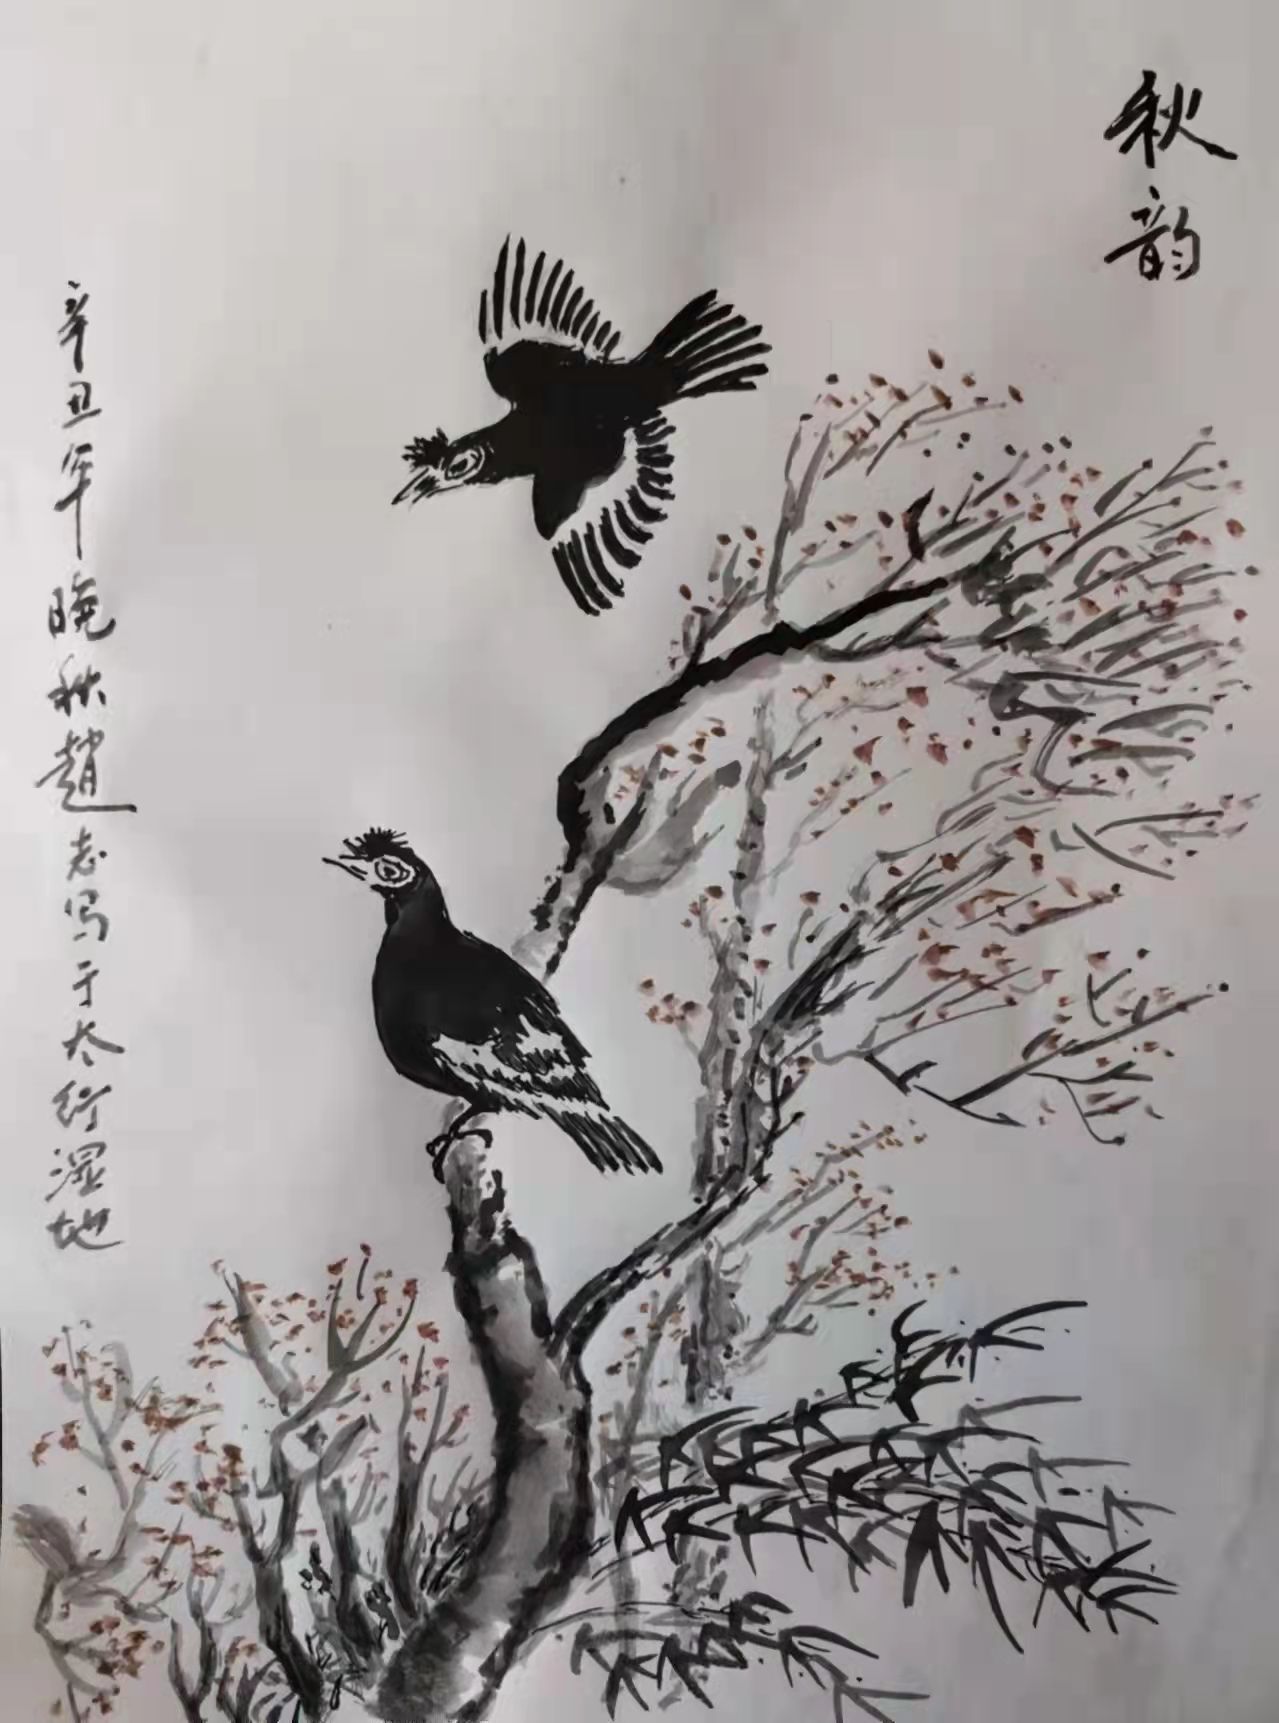 秋韵
辛丑年晚秋趙志写于太行湿地